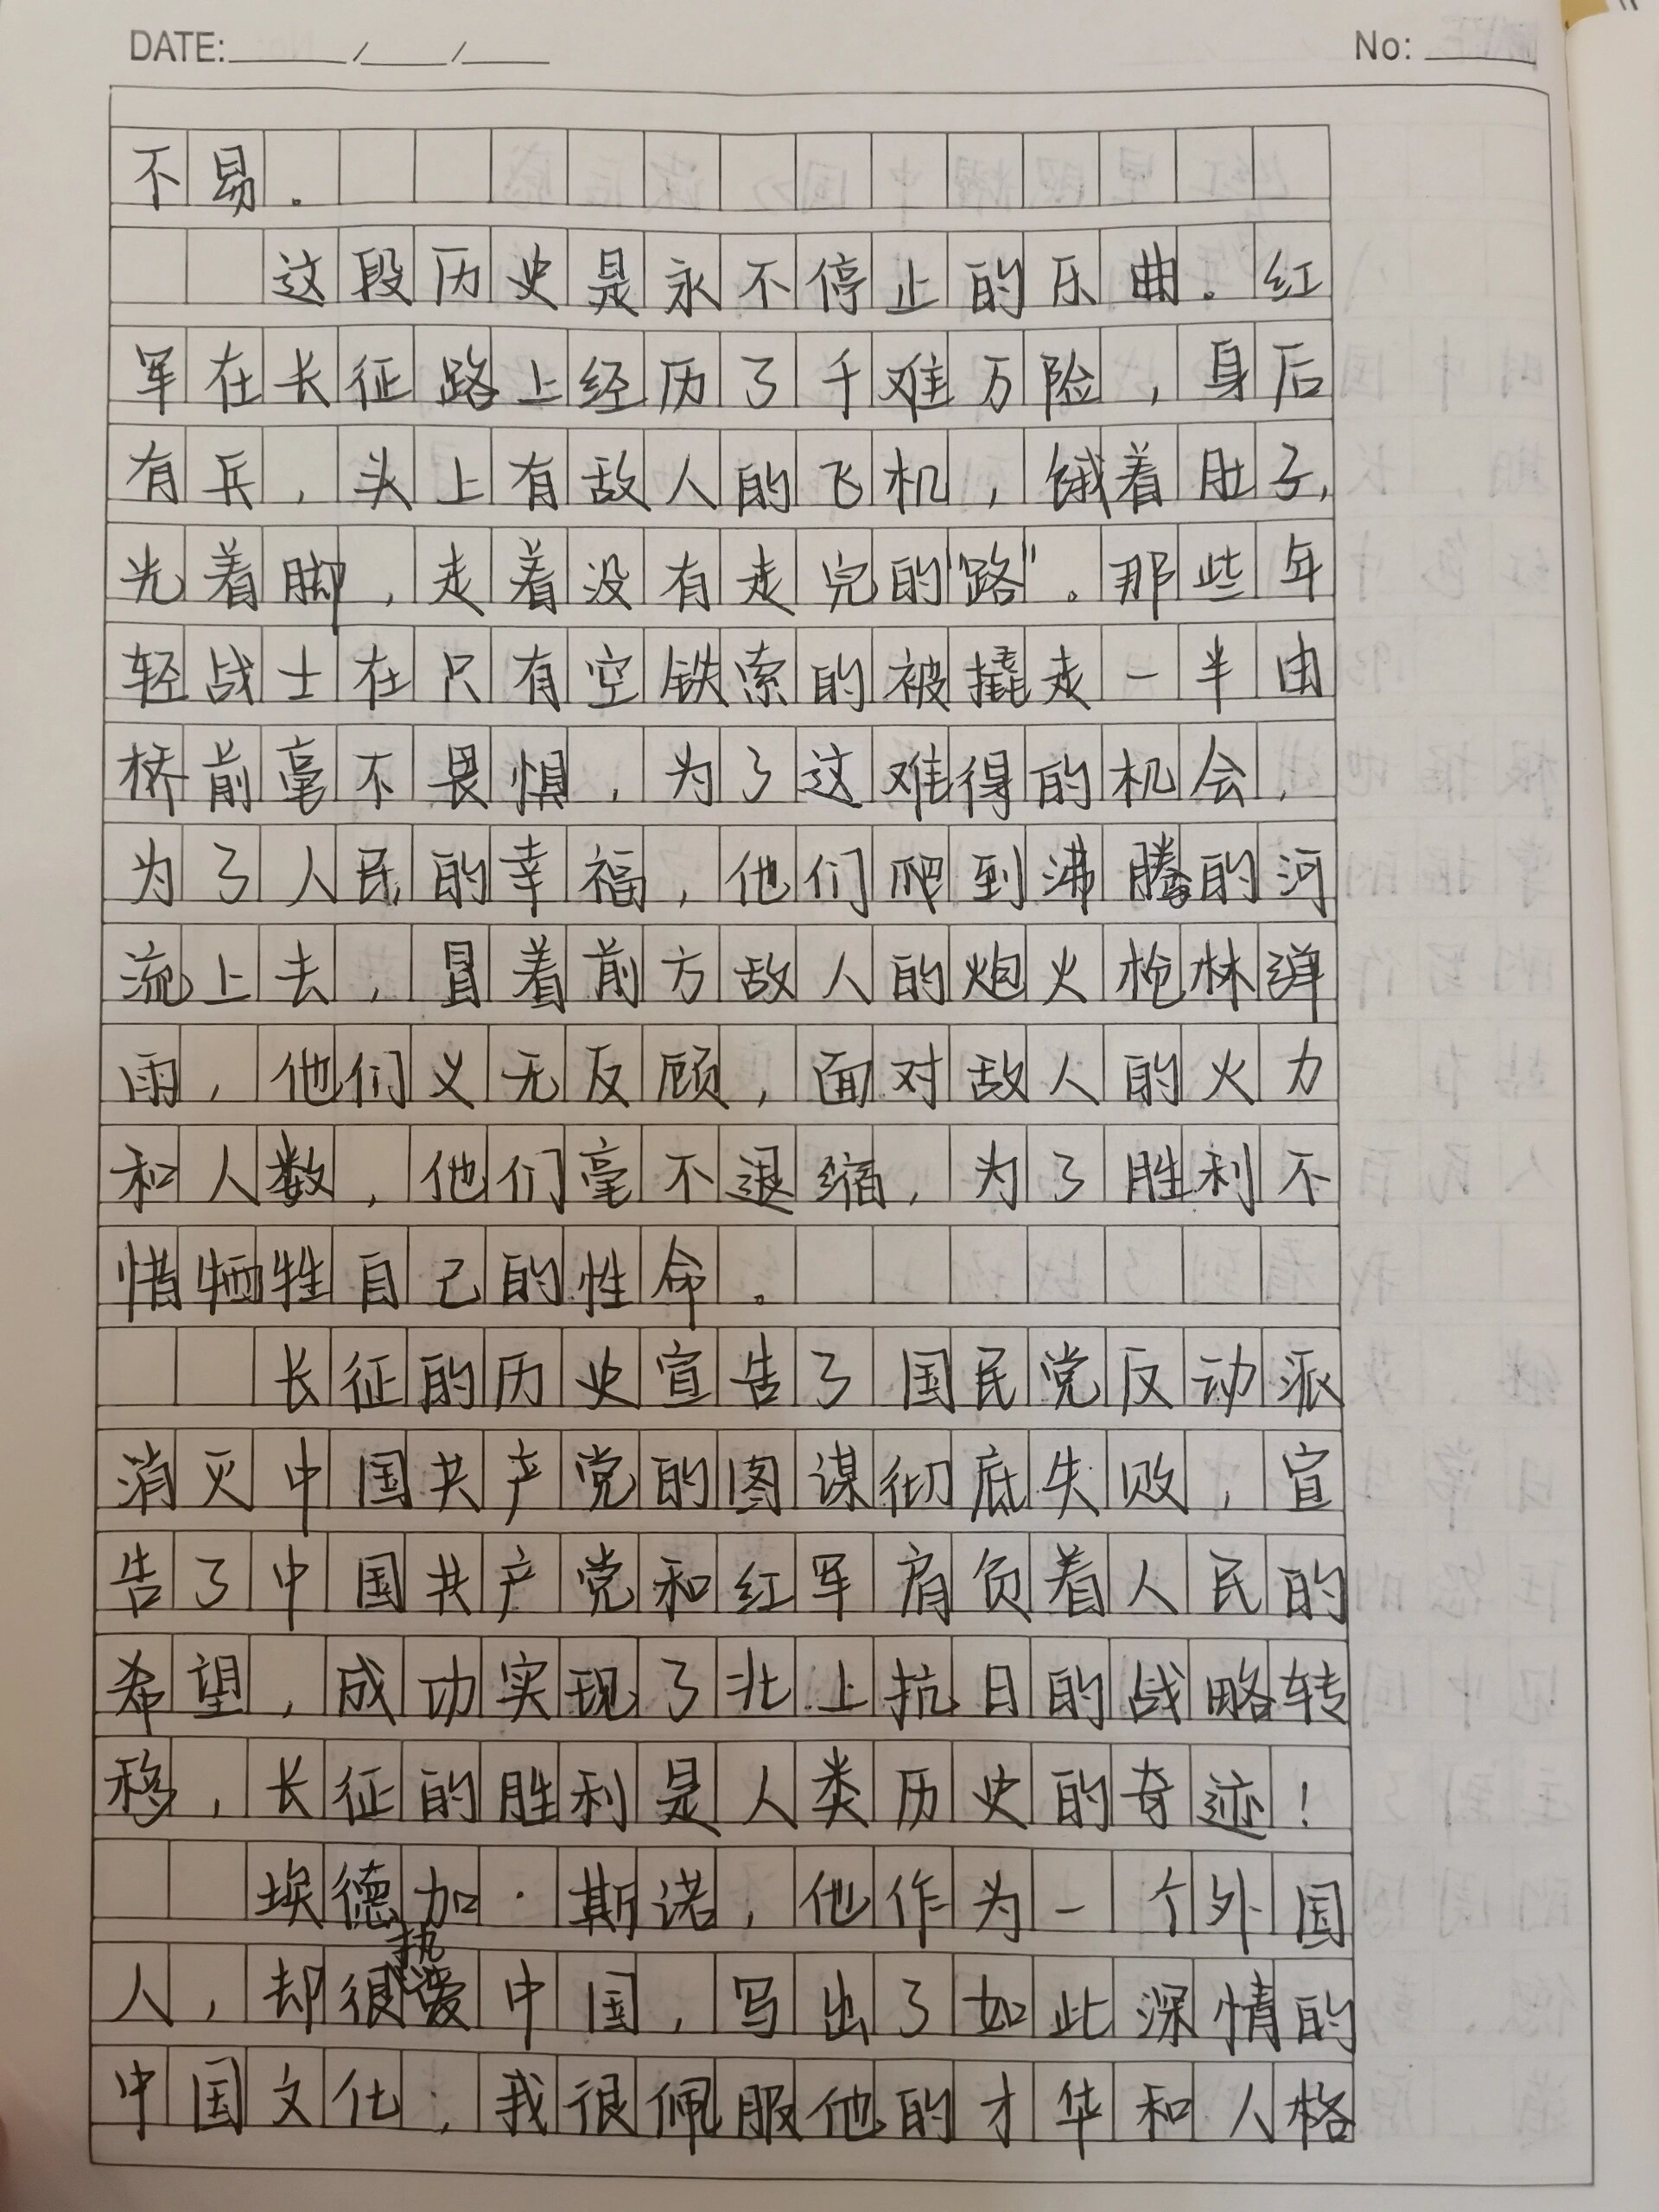 DATE: / / No:
不易。
这段历史是永不停止的乐曲。红
军在长征路上经历了千难万险，身后
有兵，头上有敌人的飞机，饿着肚子，
光着脚，走着没有走完的“路”。那些年
轻战士在只有空铁索的被撬走一半由
桥前毫不畏惧，为了这难得的机会，
为了人民的幸福，他们爬到沸腾的河
流上去，冒着前方敌人的炮火枪林弹
雨，他们义无反顾，面对敌人的火力
和人数，他们毫不退缩，为了胜利不
惜牺牲自己的性命。
长征的历史宣告了国民党反动派
消灭中国共产党的图谋彻底失败，宣
告了中国共产党和红军肩负着人民的
希望，成功实现了北上抗日的战略转
移，长征的胜利是人类历史的奇迹！
埃德加·斯诺，他作为一个外国
人，却很热爱中国，写出了如此深情的
中国文化，我很佩服他的才华和人格